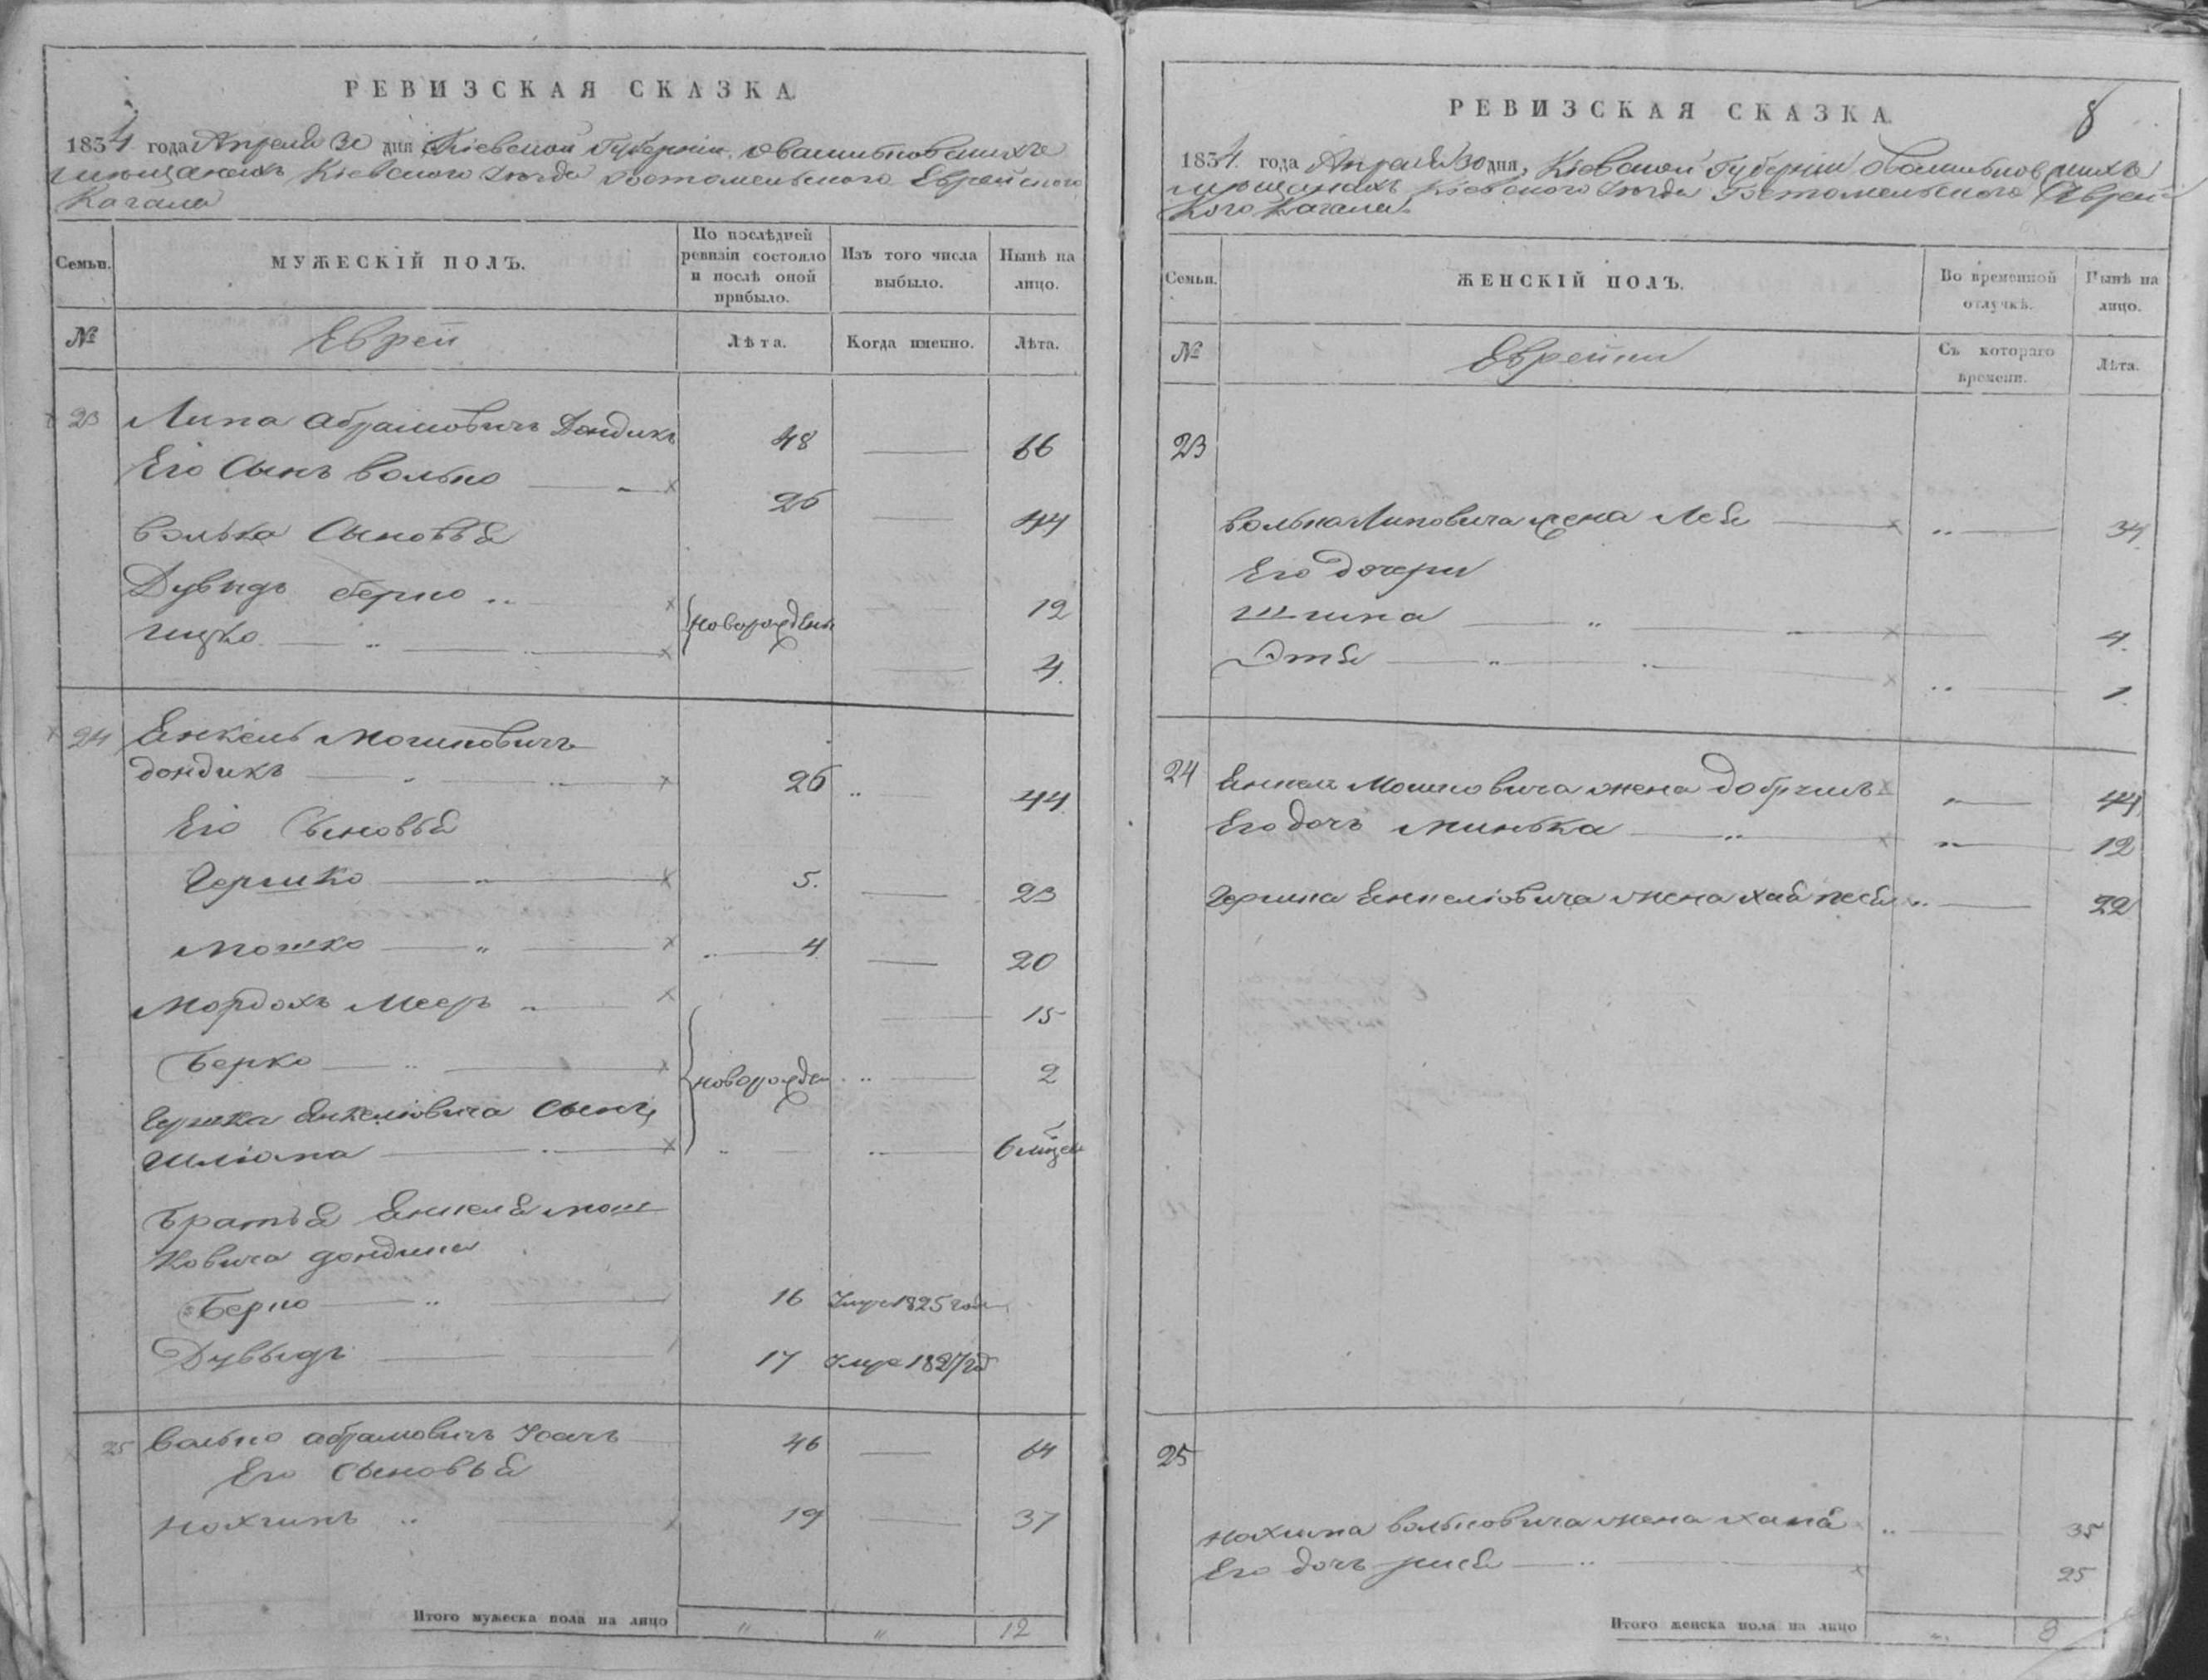 РЕВИЗСКАЯ СКАЗКА.
1834 года Апреля 30 дня Кіевской Губерніи о
мющанахъ Кіевского Уѣзда Гостомельского Еврейского
Кагала
Семьи.
МУЖЕСКІЙ ПОЛЪ.
По послѣдней ревизіи состояло и послѣ оной прибыло.
Изъ того числа выбыло.
Нынѣ на лицо.
№
Евреи
Лѣта.
Когда именно.
Лѣта.
23 Липа Абрамовичъ Дондикъ 48 66
Его Сынъ Волько 26 44
Волька Сыновья
Дувыдъ Берко 12
новорожденн
Ицко 4.
24 Янкель Мошковичъ
дондикъ 26 44
Его Сыновья
Гершко 5. 23
Мошко 4 20
Мордохъ Меер 15
Берко новорожден 2
Гершка Янкелiовича сынъ
Шліома 6 мѣцев
Братья Янкеля Мош
ковича дондика
Берко 16 Умре 1825 года
Дувыдъ 17 Умре 1827 год
25 Волько Абрамовичъ 46 64
Его Сыновья
Нохимъ 19 37
Итого мужеска пола на лицо " " 12
8
РЕВИЗСКАЯ СКАЗКА.
1834 года Апреля 30 дня, Кіевской Губерніи о
мющанахъ Кіевского Уѣзда Гостомельского Еврей
кого Кагала.
Семьи.
ЖЕНСКІЙ ПОЛЪ.
Во временной отлучкѣ.
Нынѣ на лицо.
№
Еврейки
Съ котораго времени.
Лѣта.
23
Волька Липовича жена Лея 34.
Его дочери
4.
Этя 1.
24 Янкеля Мошковича жена 44
Его дочь Минька 12
Гершка Янкеліовича жена Хая Песя 22
25
Нохима Вольковича жена Хана 35
Его дочь 25
Итого женска пола на лицо " 8